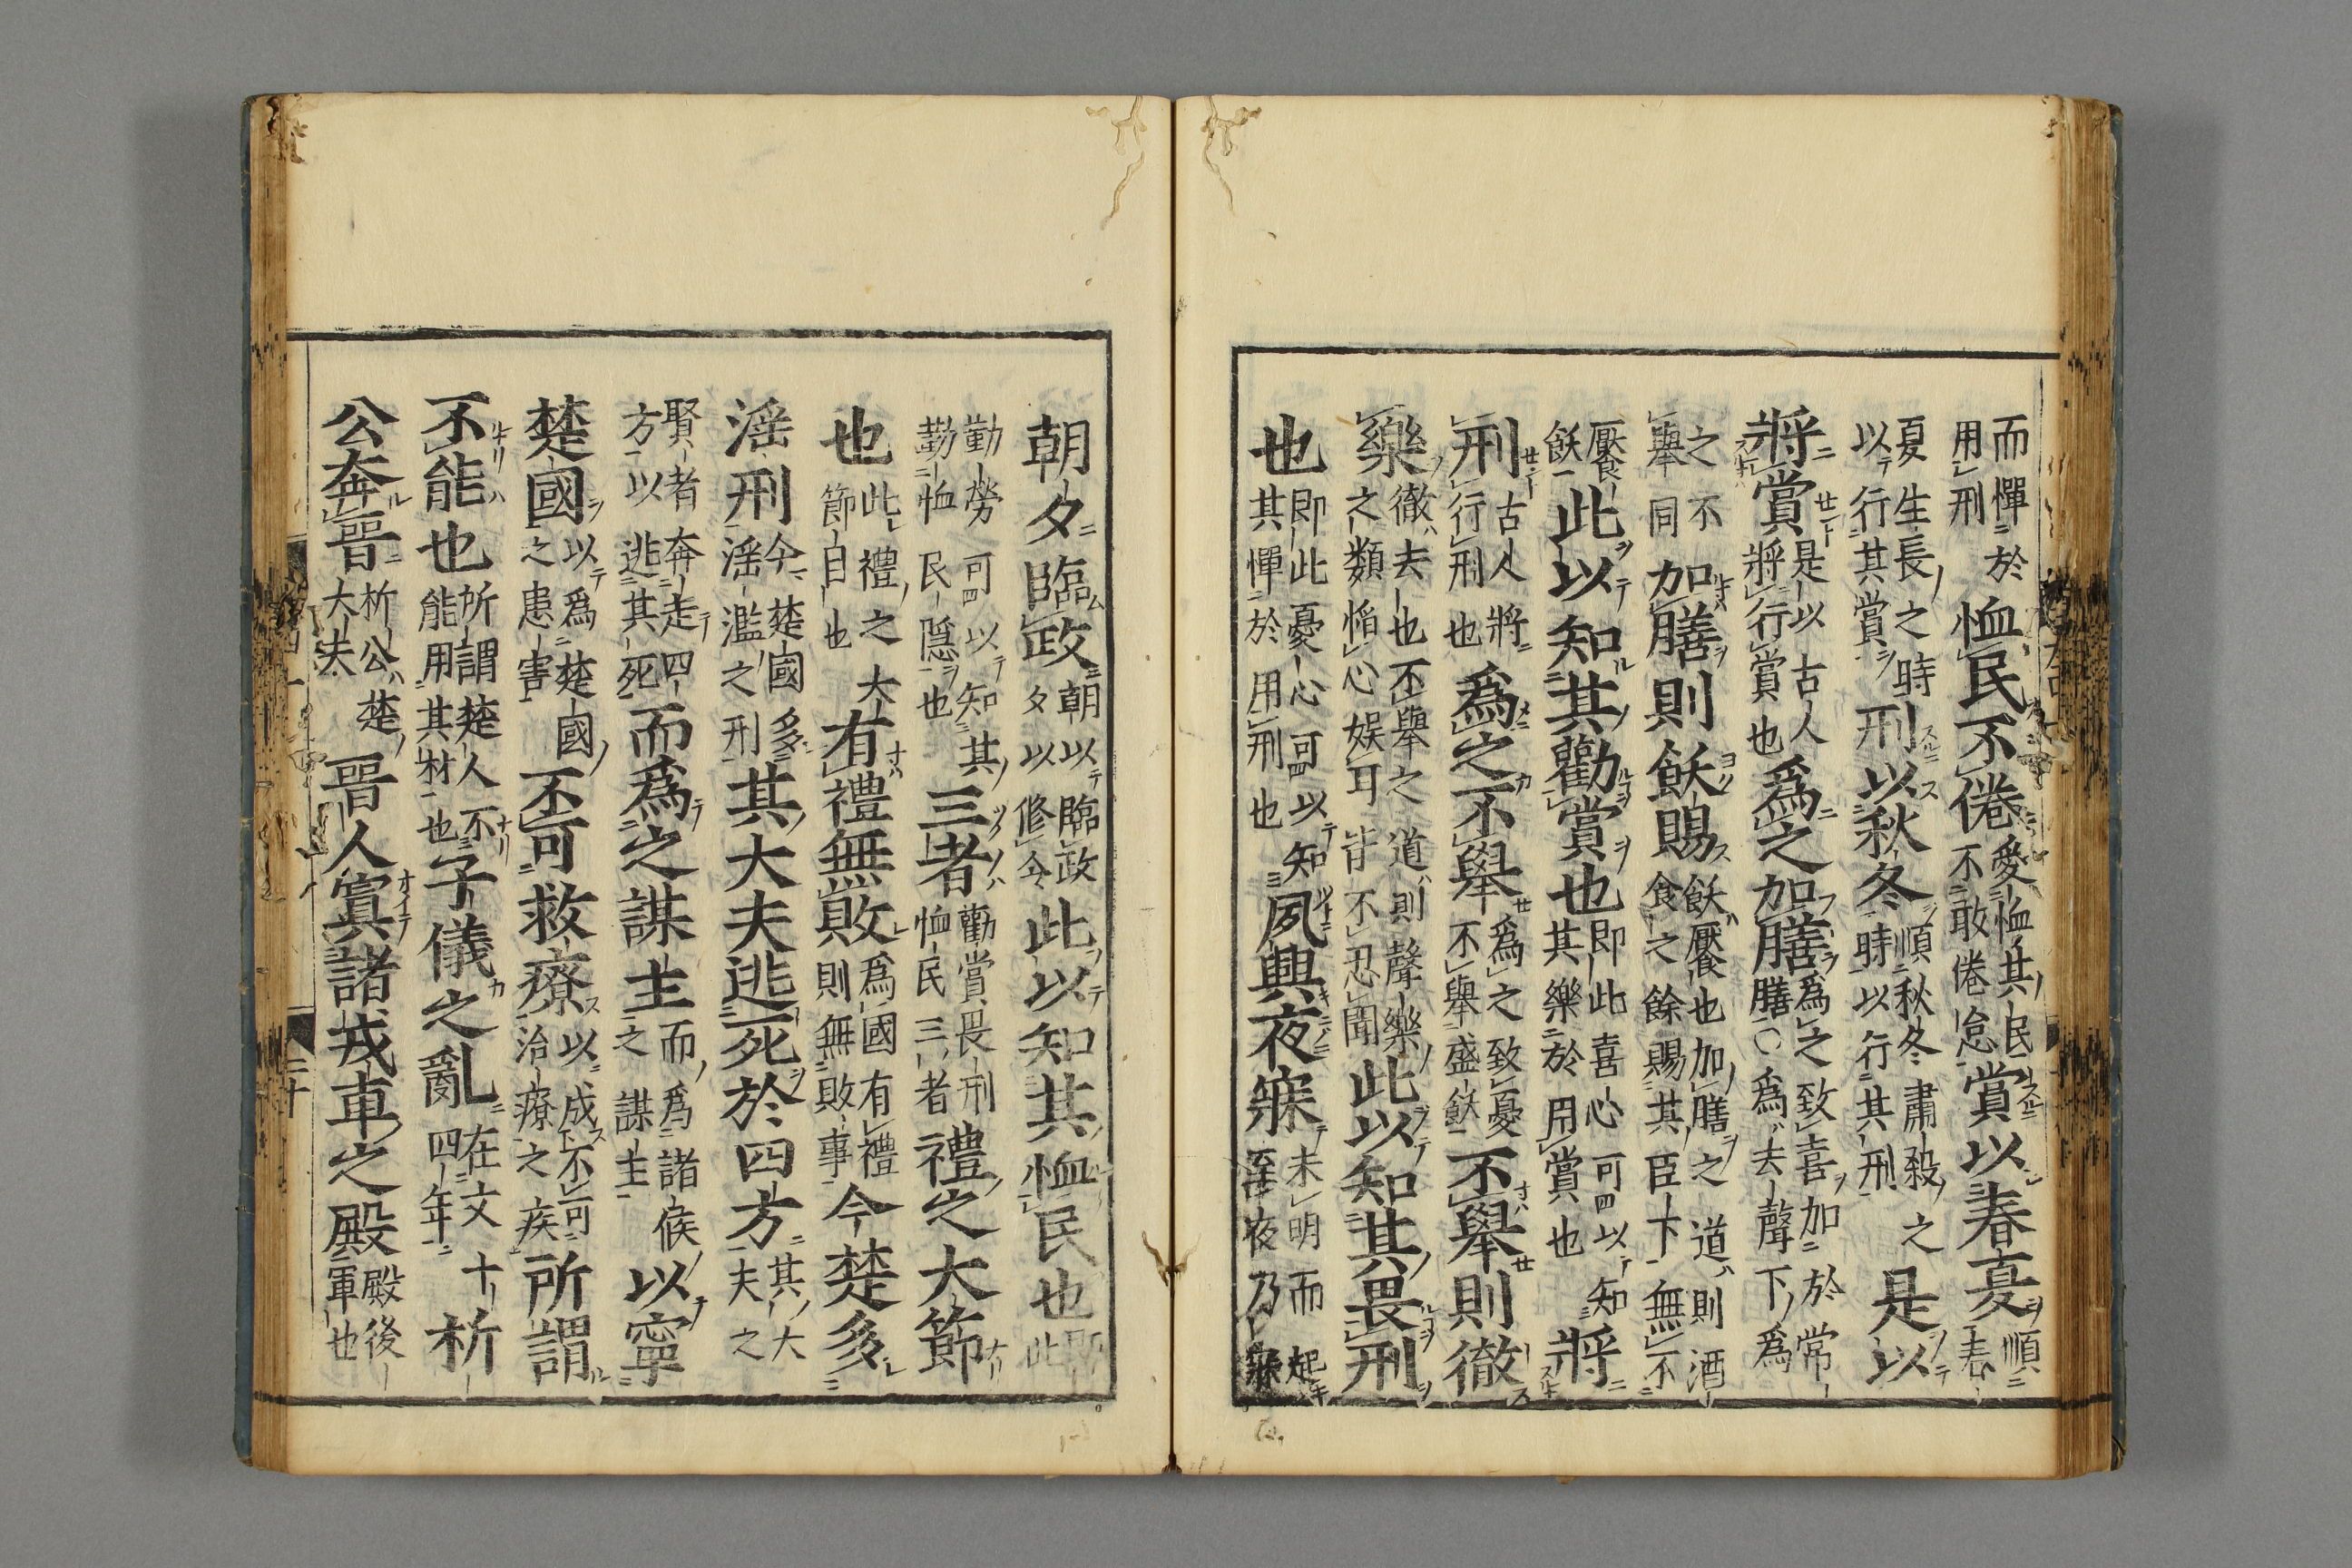 而憚於用刑恤民不倦愛恤其民不敢倦怠賞以春夏順春
夏生長之時以行其賞刑以秋冬順秋冬肅殺之時以行其刑是以
將賞是以古人將行賞也爲之加膳爲之致喜加於常膳〇爲去聲下爲
之不舉同加膳則飫賜飫饜也加膳之道則酒食之餘賜其臣下無不
饜飫此以知其勸賞也即此喜心可以知其樂於用賞也將
刑古人將行刑也爲之不舉爲之致憂不舉盛飫不舉則徹
樂徹去也不舉之道則聲樂之類慆心娯耳皆不忍聞此以知其畏刑
也即此憂心可以知其憚於用刑也夙興夜寐未明而起至夜乃寐
朝夕臨政朝以臨政夕以修令此以知其恤民也即此
勤勞可以知其勤恤民隱也三者勸賞畏刑恤民三者禮之大節
也此禮之大節目也有禮無敗爲國有禮則無敗事今楚多
淫刑今楚國多淫濫之刑其大夫逃死於四方其大夫之
賢者奔走四方以逃其死而爲之謀主而爲諸侯之謀主以寧
楚國以爲楚國之患害不可救療以成不可治療之疾所謂
不能也所謂楚人不能用其材也子儀之亂在文十四年析
公奔晉析公楚大夫晉人寘諸戎車之殿殿後軍也